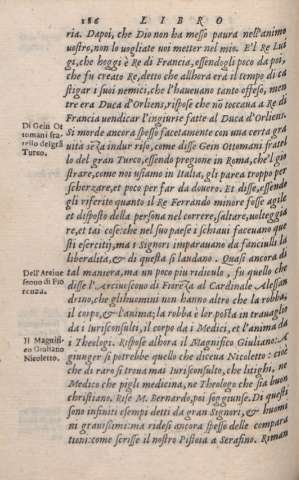 186 LIBRO
ria. Dapoi, che Dio non ha messo paura nell'animo
uostro, non lo uogliate uoi metter nel mio. E'l Re Lui
gi, che hoggi è Re di Francia, essendogli poco da poi,
che fu creato Re, detto che allhora erà il tempo di ca
stigar i suoi nemici, che l'haueuano tanto offeso, men
tre era Duca d'Orliens, rispose che nō toccaua a Re di
Francia uendicar l'ingiurie fatte al Duca d'Orliens.
Di Gein Ot
tomani fra
tello del grã
Turco.
Si morde ancora spesso facetamente con una certa gra
uità sēza indur riso, come disse Gein Ottomani fratel
lo del gran Turco, essendo pregione in Roma, che'l gio
strare, como noi usiamo in Italia, gli parea troppo per
scherzare, et poco per far da douero. Et disse, essendo
gli riferito quanto il Re Ferrando minore fosse agile
et disposto della persona nel correre, saltare, uolteggia
re, et tai cose: che nel suo paese i schiaui faceuano que
sti esercitij, ma i Signori imparauano da fanciulli la
liberalità, & di questa si laudano. Quasi ancora di
Dell'Arciue
scouo di Fio
renza.
tal maniera, ma un poco piu ridiculo, fu quello che
disse l'Arciuescouo di Fiorēza al Cardinale Alessan
drino, che gli huomini non hanno altro che la robba,
il corpo, & l'anima; la robba è lor posta in trauaglio
da i Iurisconsulti, il corpo da i Medici, et l'anima da
Il Magnifi-
co Giuliano
Nicoletto.
i Theologi. Rispose allhora il Magnifico Giuliano: A
giunger si potrebbe quello che diceua Nicoletto: cioè
che di raro si troua mai Iurisconsulto, che litighi, ne
Medico che pigli medicina, ne Theologo che sia buon
christiano. Rise M. Bernardo, poi soggiunse. Di questi
sono infiniti esempi detti da gran Signori, & huomi
ni grauissimi: ma ridesi ancora spesso delle compara
tioni: come scrisse il nostro Pistoia a Serafino. Riman